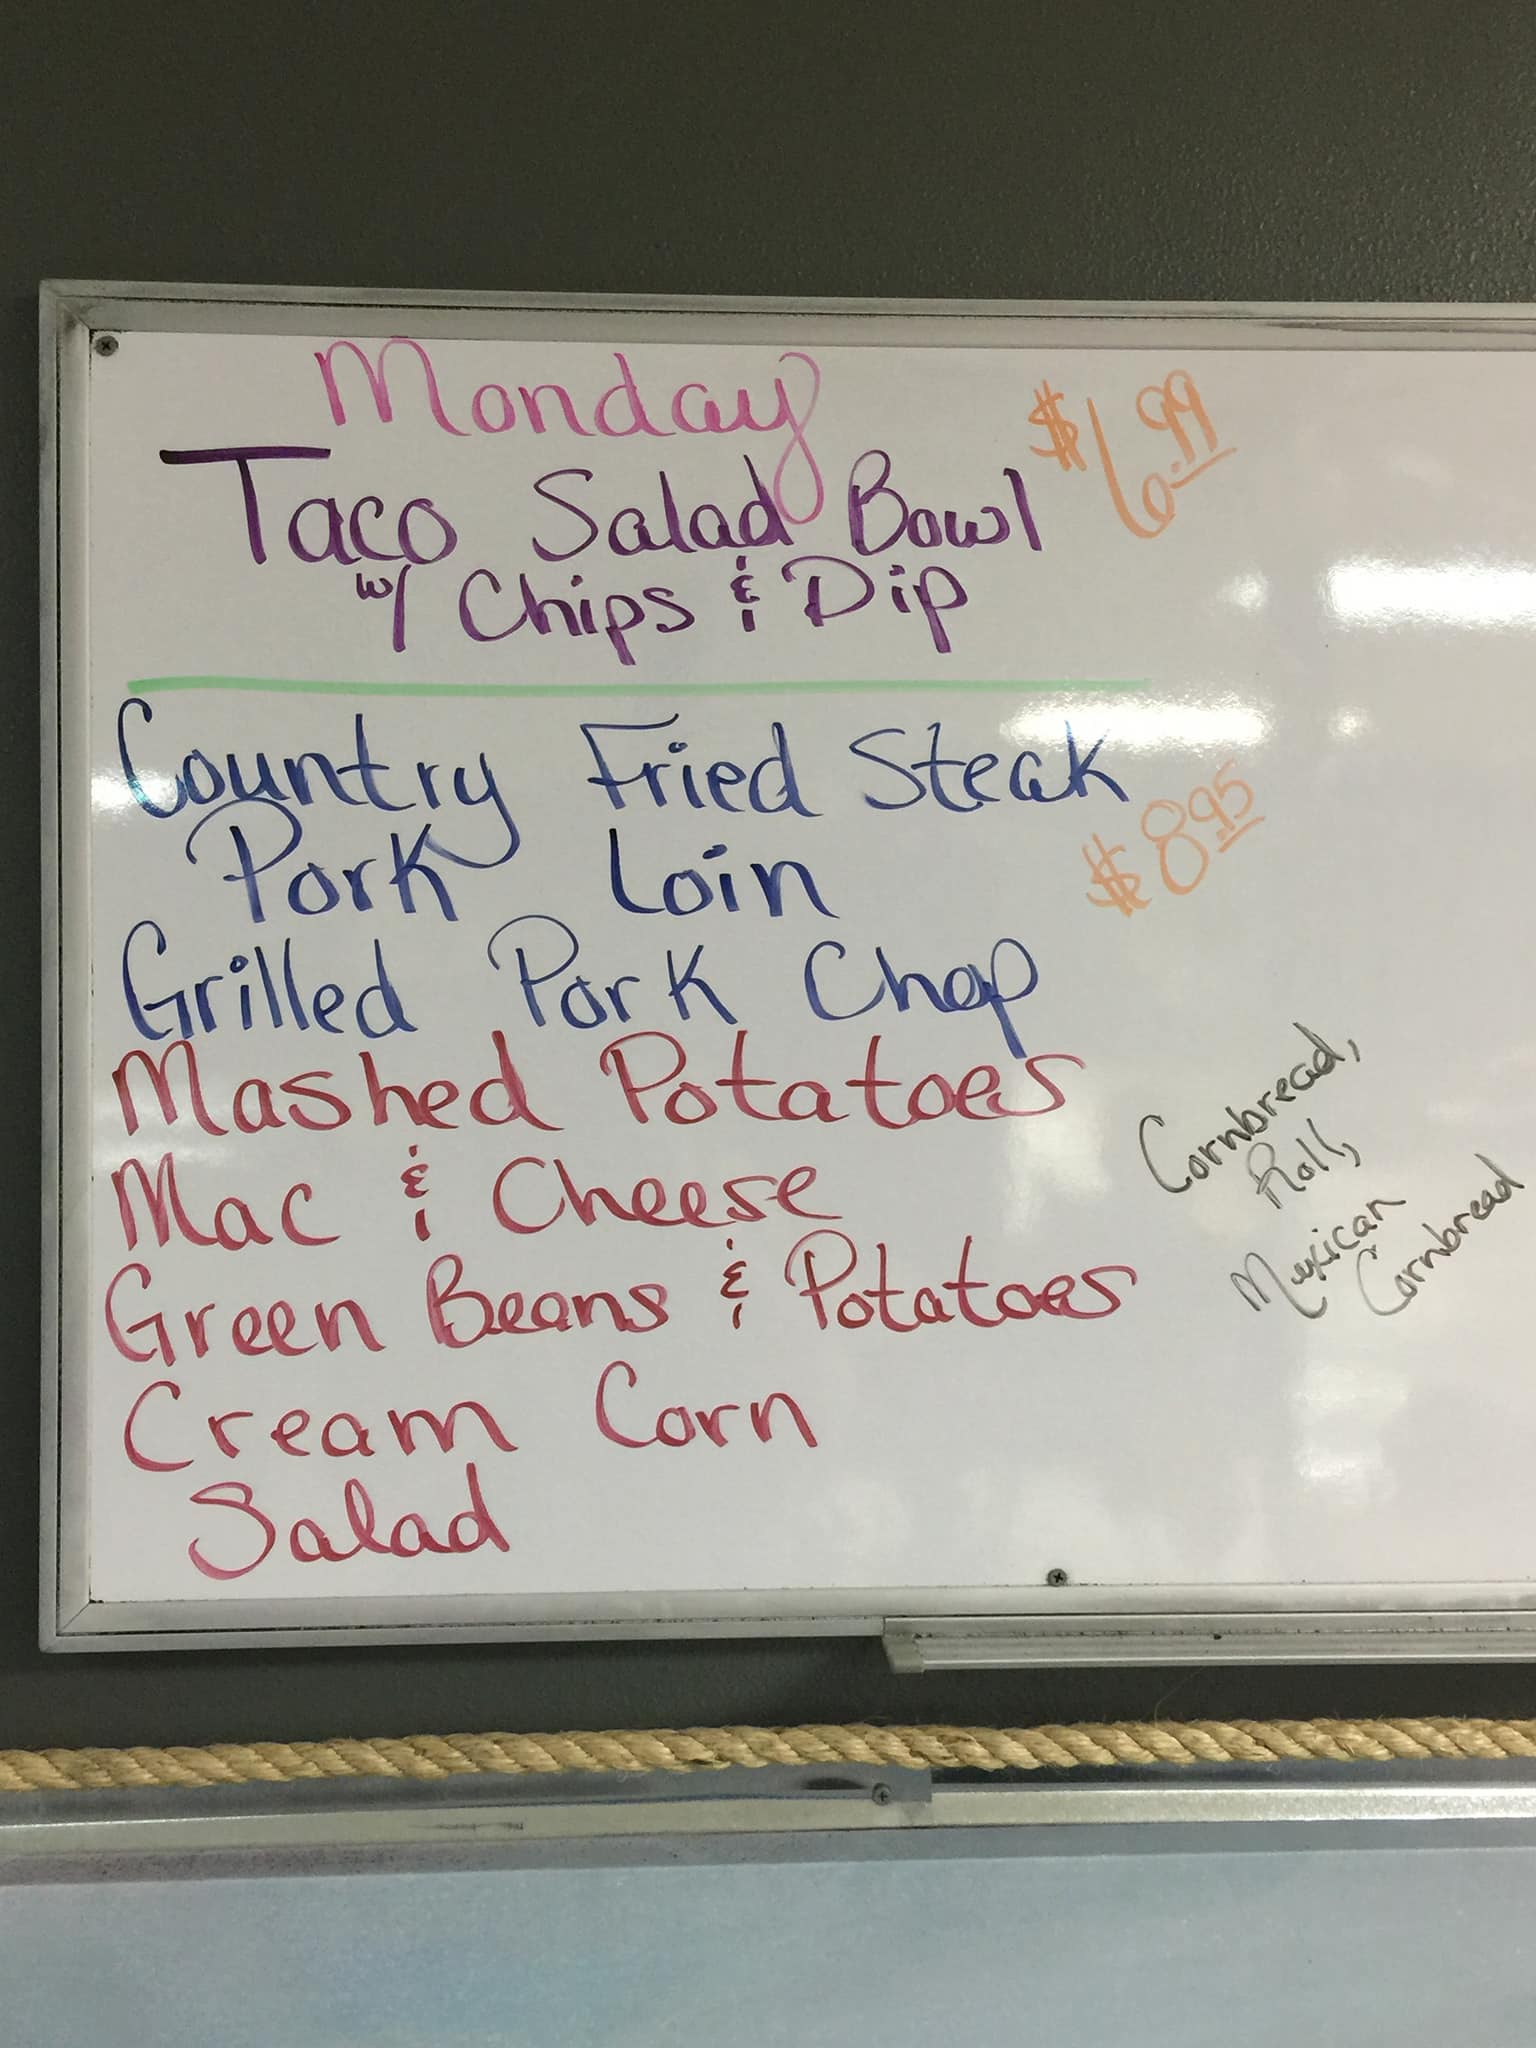 Monday
$6.99
Taco Salad Bowl
w/ Chips & Dip
Country Fried Steak
$8.95
Pork Loin
Grilled Pork Chop
Mashed Potatoes
Mac & Cheese
Green Beans & Potatoes
Cream Corn
Salad
Cornbread,
Roll,
Mexican
Cornbread